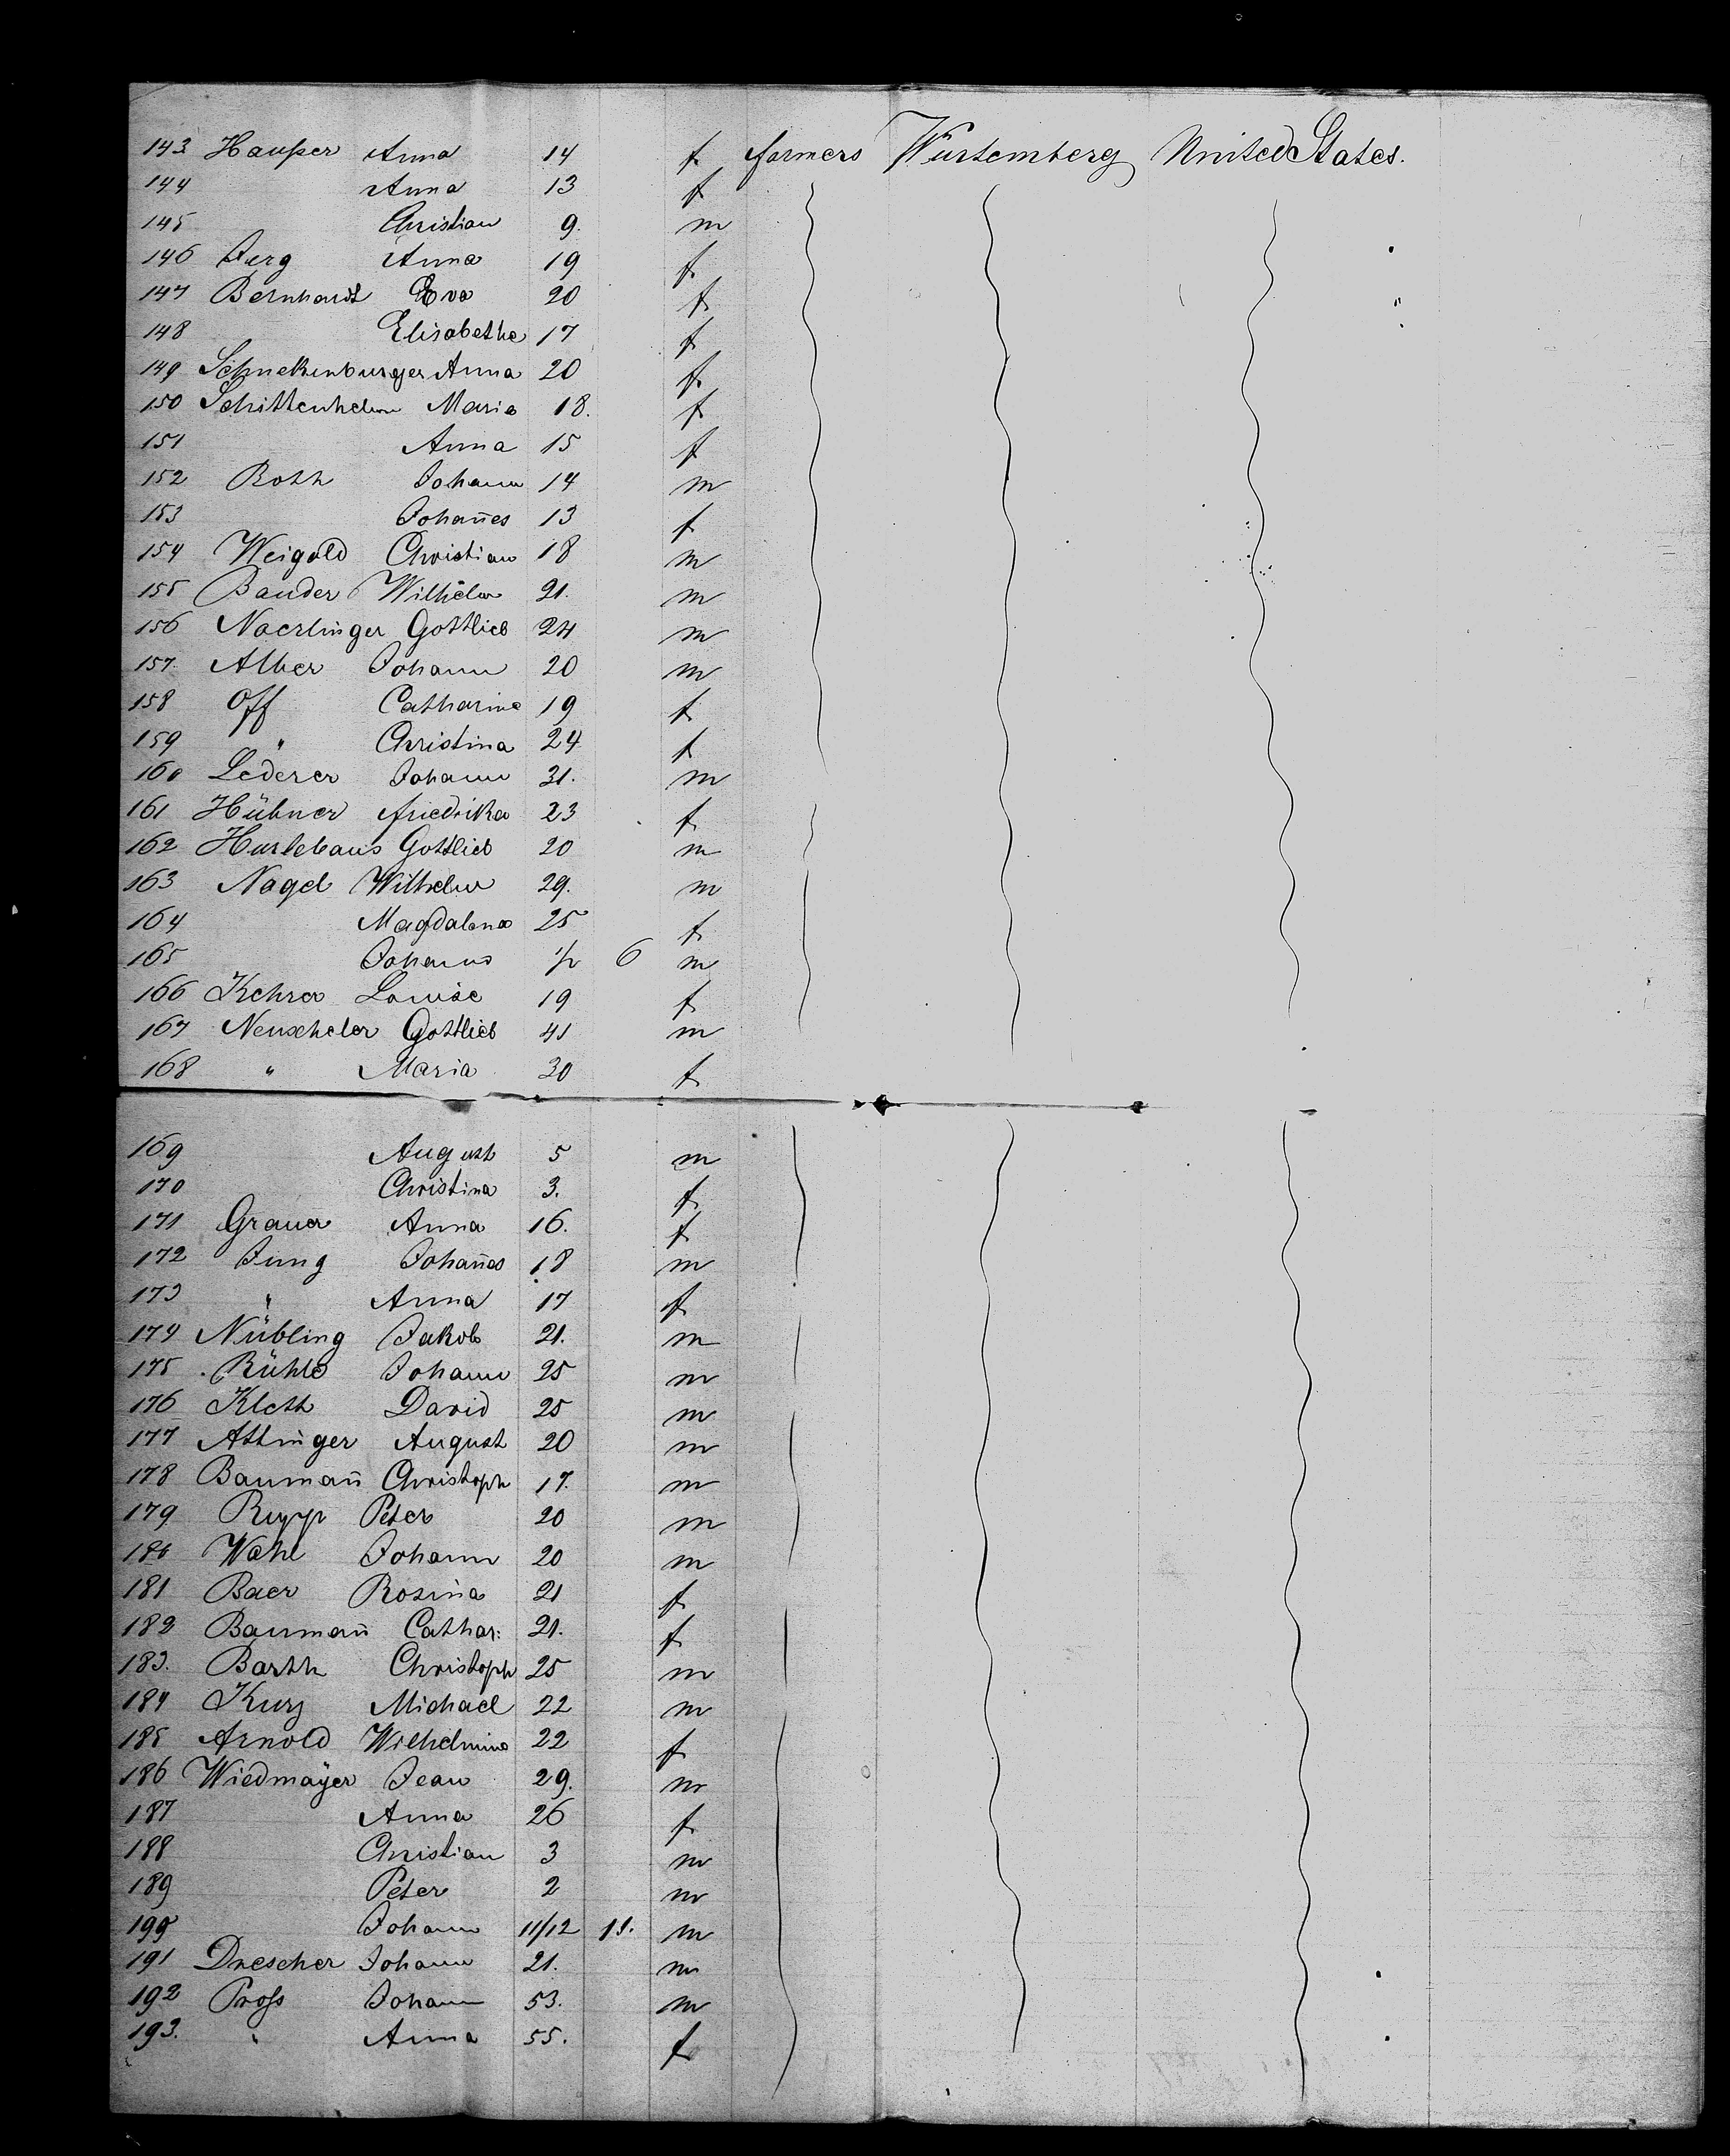 143 Hausser Anna 14 f farmers Würtemberg United States.
144 Anna 13 f
145 Christian 9. m
146 Jerg Anna 19 f
147 Bernhardt Eva 20 f
148 Elisabethe 17 f
149 Schnekenburger Anna 20 f
150 Schittenhelm Maria 18. f
151 Anna 15 f
152 Roth Johann 14 m
153 Johan̄es 13 f
154 Weigold Christian 18 m
155 Bauder Wilhelm 21. m
156 Naerlinger Gottlieb 24 m
157. Alber Johann 20 m
158 Off Catharine 19 f
159 " Christina 24 f
160 Lederer Johann 31. m
161 Hübner friedrika 23 f
162 Hurlebaus Gottlieb 20 m
163 Nagel Wilhelm 29. m
164 Magdalena 25 f
165 Johanns 1/2 6 m
166 Kehrer Louise 19 f
167 Neuscheler Gottlieb 41 m
168 " Maria 30 f
169 August 5 m
170 Christina 3. f
171 Grauer Anna 16. f
172 Jung Johan̄es 18 m
173 " Anna 17 f
174 Nübling Jakob 21. m
175 Rühle Johann 25 m
176 Kleth David 25 m
177 Attinger August 20 m
178 Bauman̄ Christoph 17. m
179 Rupp Peter 20 m
180 Wahl Johann 20 m
181 Baer Rosina 21 f
182 Bauman̄ Cathar: 21. f
183. Barth Christoph 25 m
184 Kurz Michael 22 m
185 Arnold Wilhelmine 22 f
186 Wiedmaÿer Jean 29. m
187 Anna 26 f
188 Christian 3 m
189 Peter 2 m
190 Johann 11/12 11. m
191 Drescher Johann 21. m
192 Pross Johann 53. m
193. " Anna 55. f